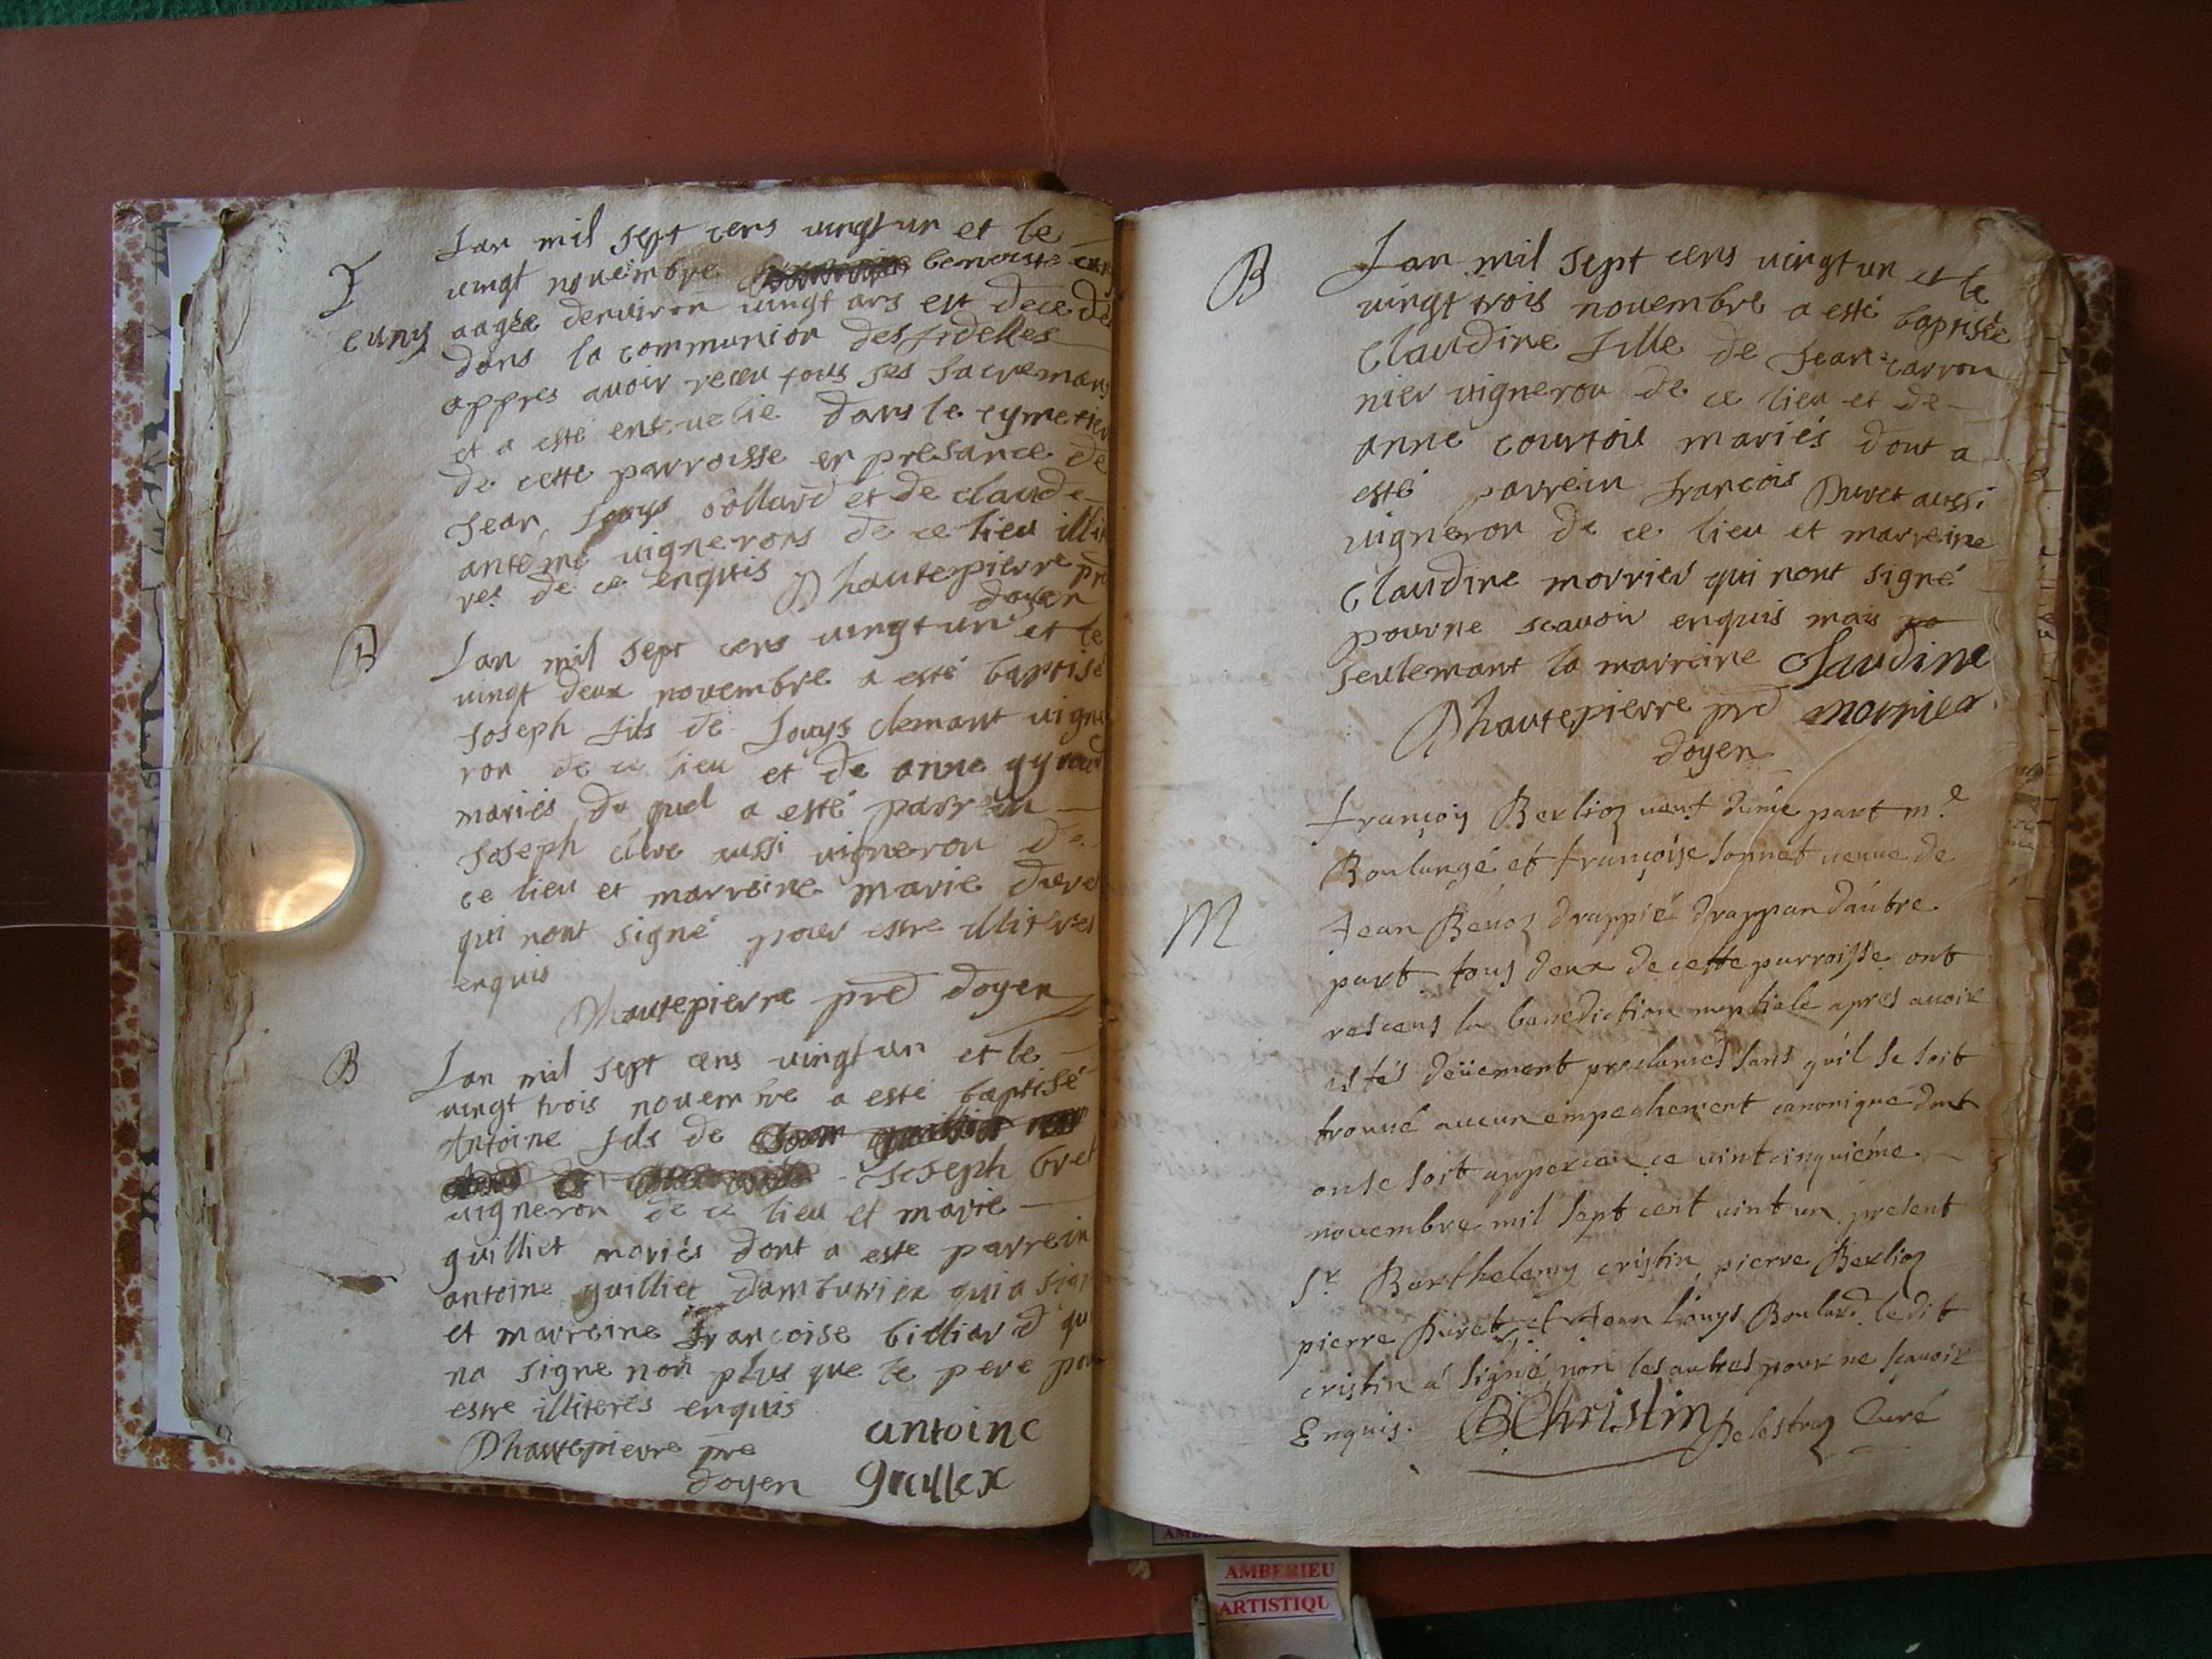 Lan mil sept cens vingt un et le
vingt novembre benoitte
E
cuny aagée denviron vingt ans est decedé
dans la communion des fidelles
appres avoir receu tous ses sacremans
et a esté ensevelie dans le cymetier
de cette parroisse en presance de
Jean Louys bollard et de claude
antéme vignerons de ce lieu illit
res de ce enquis Dhautepierre pre
doyen
B
Lan mil sept cens vingt un et le
vingt deux novembre a esté baptisé
Joseph fils de Louys clemant vigne
ron de ce lieu et de anne gyraud
mariés du quel a esté parrein
Joseph cleve aussi vigneron de
ce lieu et marreine marie
qui nont signé pour estre illiteres
enquis
Dhautepierre pre doyen
B
Lan mil sept cens vingt un et le
vingt trois novembre a esté baptisé
Antoine fils de
Joseph bret
vigneron de ce lieu et marie
guilliet mariés dont a este parrein
antoine guilliet dambutrix qui a sign
et marreine francoise billiard qui
na signe non plus que le pere pour
estre illiteres enquis
Dhautepierre pre antoine
doyen
B
Lan mil sept cens vingt un et le
vingt trois novembre a esté baptisée
Claudine fille de Jean carron
nier vigneron de ce lieu et de
anne courtois mariés dont a
esté parrein francois Puret aussi
vigneron de ce lieu et marreine
Claudine morrier qui nont signé
pour ne scavoir enquis mais
seulemant la marreine Claudine
Dhautepierre pre morrier
doyen
françois Berlioz veuf dúne part m.e
Boulangé et françoise sonnet veuve de
M
Jean Benoz drappié drappan dáutre
part tous deux de cette parroisse ont
resceus la benediction nuptiale apres avoir
estés deüement proclamés sans qu'il se soit
trouvé aucun empechement canonique dont
on se soit apperceu ce vint cinquiéme
novembre mil sept cent vint un present
Sr Barthelemy cristin pierre Berlioz
pierre Puret et Jean Louys Boulard ledit
cristin á signé non les autres pour ne scavoir
Enquis. BChristin Delestraz Curé
AMBERIEU
ARTISTIQU